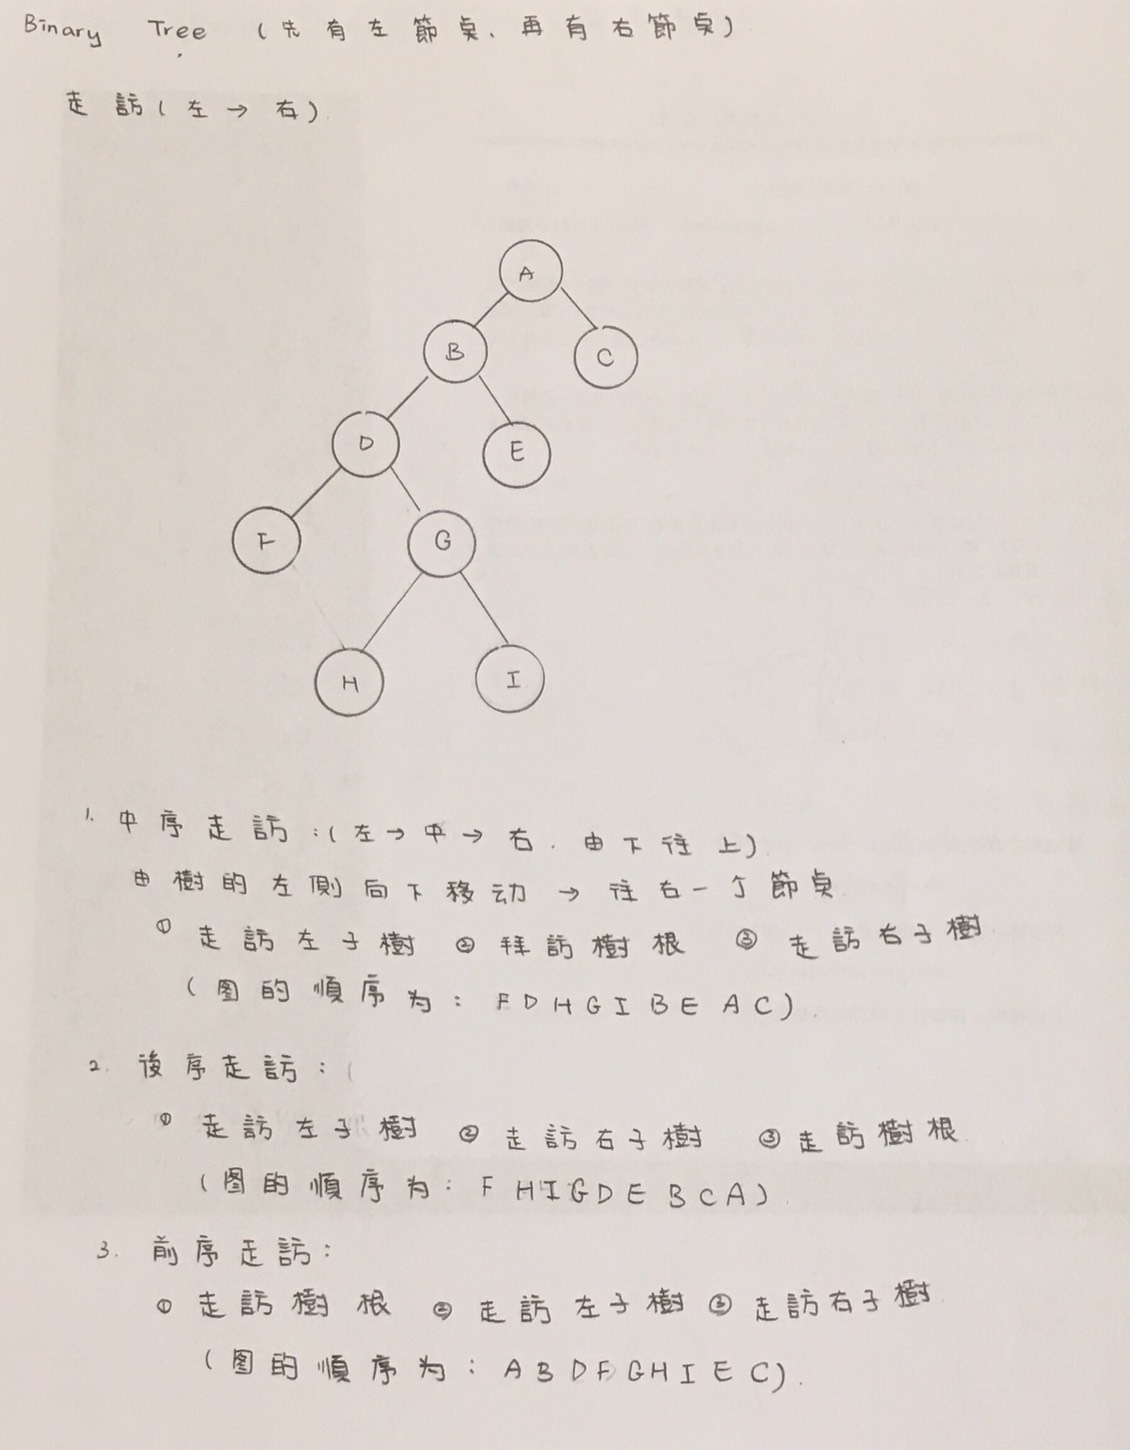 Binary Tree (先有左節點、再有右節點)
走訪(左→右)
A
B
C
D
E
F
G
H
I
1. 中序走訪:(左→中→右.由下往上)
由樹的左側向下移动→往右一个節點
① 走訪左子樹 ② 拜訪樹根 ③ 走訪右子樹
(图的順序为:FDHGIBEAC)
2. 後序走訪:(
① 走訪左子樹 ② 走訪右子樹 ③ 走訪樹根
(图的順序为:FHIGDEBCA)
3. 前序走訪:
① 走訪樹根 ② 走訪左子樹 ③ 走訪右子樹
(图的順序为:ABDFGHIEC).